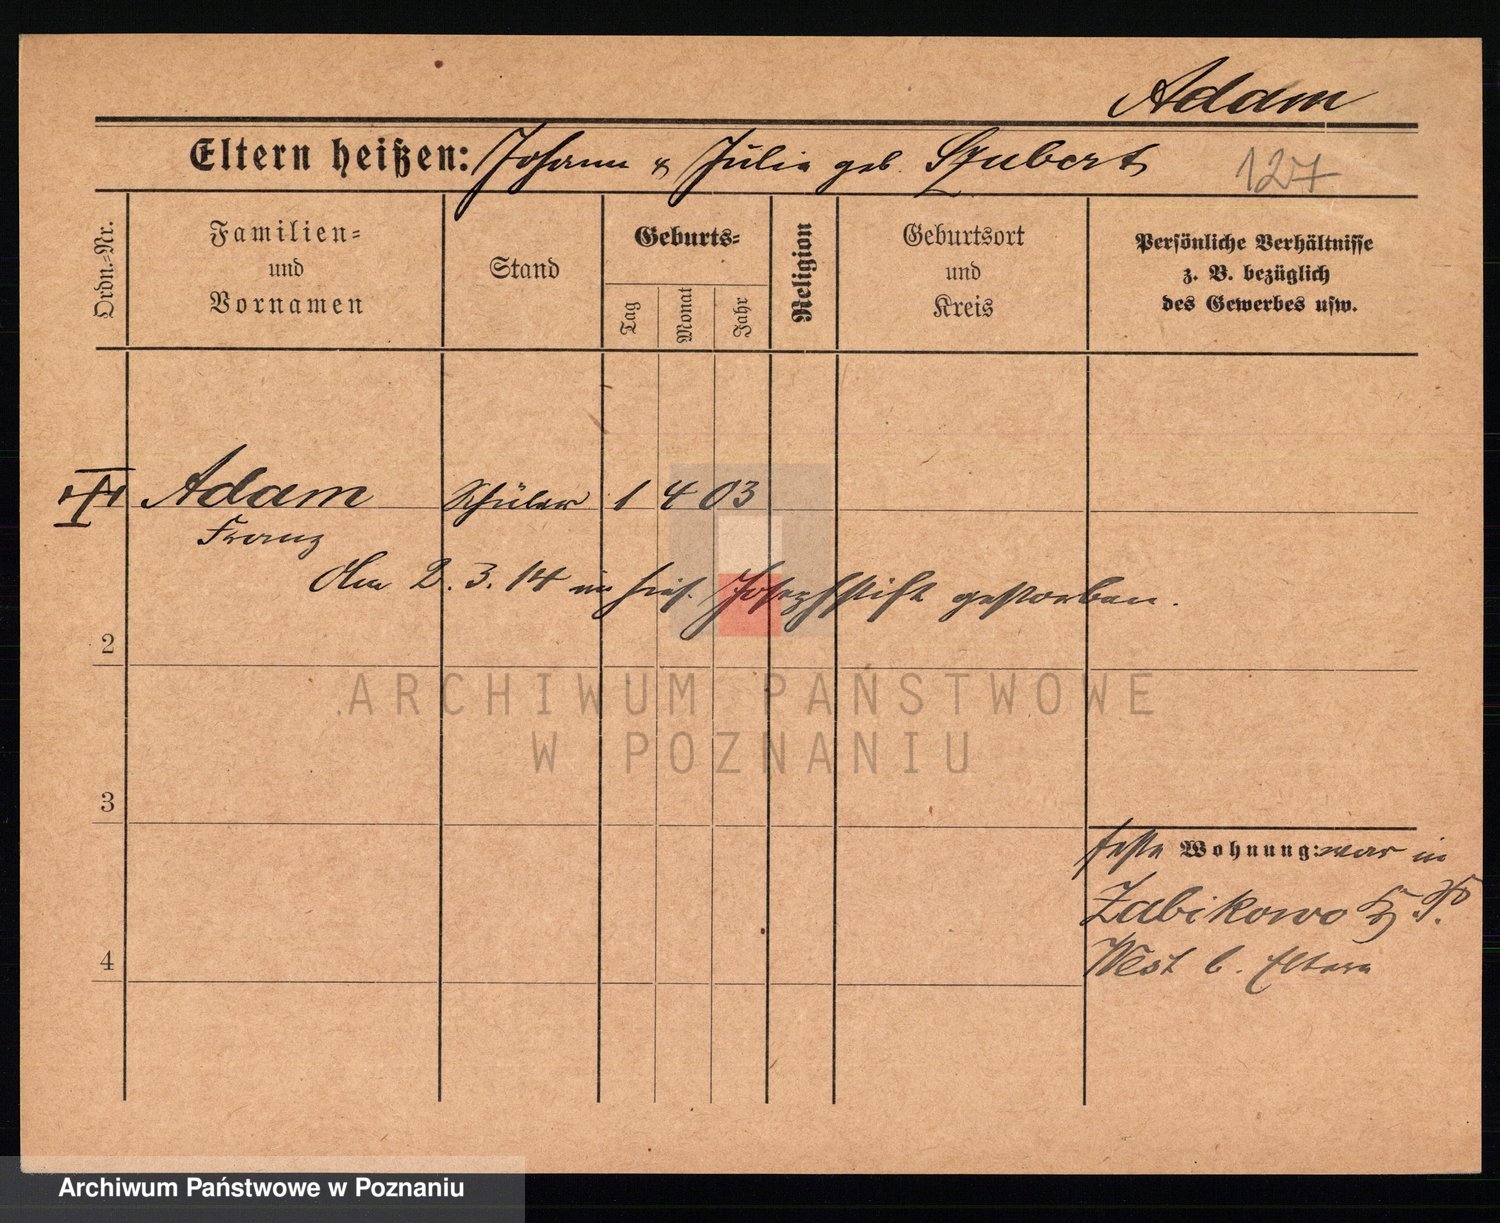 Adam
Eltern heißen: Johann & Julie geb. Szubert
127
Ordn.-Nr.
Familien-
und
Vornamen
Stand
Geburts-
Tag
Monat
Jahr
Religion
Geburtsort
und
Kreis
Persönliche Verhältnisse
z. B. bezüglich
des Gewerbes usw.
Adam Schüler 1 4 03
Franz
Am 2. 3. 14 im hies. Josephstift gestorben.
2
ARCHIWUM PAŃSTWOWE
W POZNANIU
3
feste Wohnung: war in
Zabikowo Kr. P.
West b. Eltern
4
Archiwum Państwowe w Poznaniu